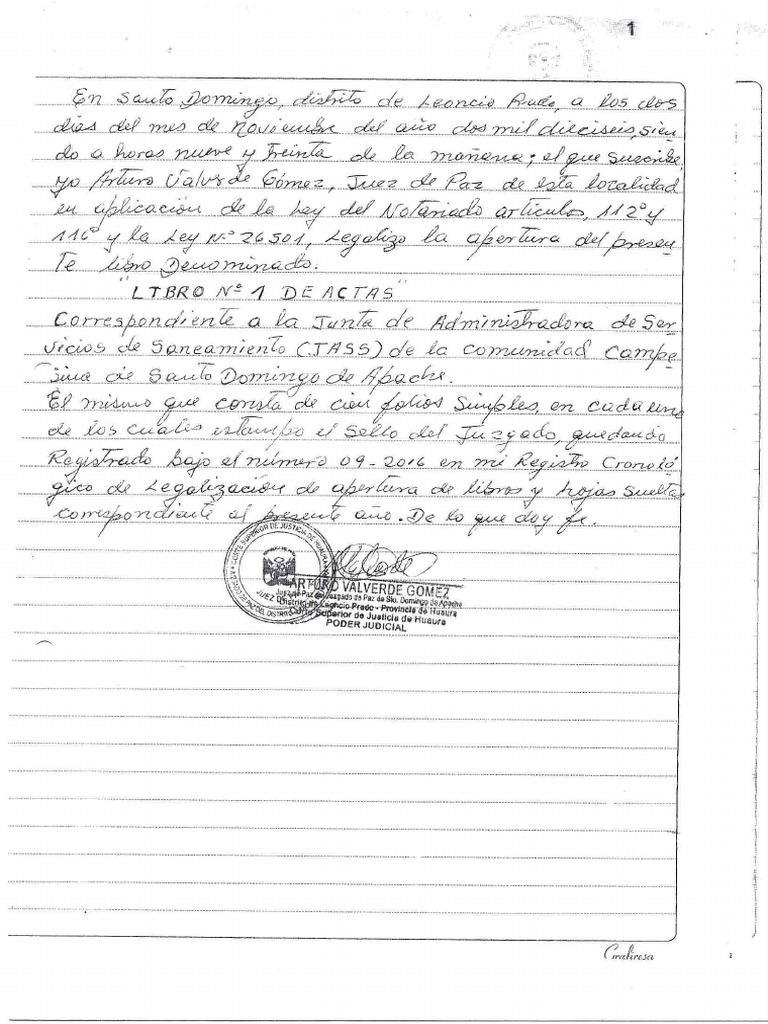 1
En Santo Domingo, distrito de Leoncio Prado, a los dos
días del mes de Noviembre del año dos mil dieciseis, sien-
do a horas nueve y treinta de la mañana; el que suscribe,
yo Arturo Valverde Gómez, Juez de Paz de esta localidad
en aplicación de la Ley del Notariado articulos, 112° y
116° y la Ley N° 26501, Legalizo la apertura del presen-
te libro Denominado.
"LIBRO N° 1 DE ACTAS"
Correspondiente a la Junta de Administradora de Ser-
vicios de Saneamiento (JASS) de la comunidad campe-
sina de Santo Domingo de Apache.
El mismo que consta de cien folios simples, en cada uno
de los cuales estampo el Sello del Juzgado, quedando
Registrado bajo el número 09-2016 en mi Registro Cronoló
gico de Legalización de apertura de libros y hojas sueltas
correspondiante al presente año. De lo que doy fe.
CORTE SUPERIOR DE JUSTICIA DE HUAURA
JUEZ DE PAZ DEL DISTRITO
ARTURO VALVERDE GOMEZ
Juez de Paz del Juzgado de Paz de Sto. Domingo de Apache
Distrito de Leoncio Prado - Provincia de Huaura
Corte Superior de Justicia de Huaura
PODER JUDICIAL